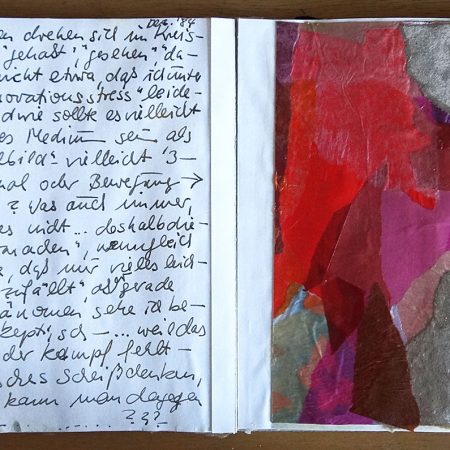 Dez. '84
en drehen sich im Kreis –
"gehabt", "gesehen" da –
nicht etwa, daß ich unter
novationsstress" leide –
dwie sollte es vielleicht
es Medium sein als
lbild: vielleicht '3 –
nal oder Bewegung →
? Was auch immer,
es nicht ... deshalb die
naden", wenngleich
, daß mir vieles leich –
zufällt", als gerade
änomen sehe ich be –
kept; sch – ... weil das
der Kampf fehlt –
sches Scheißdenken,
kann man dagegen
? ? ?